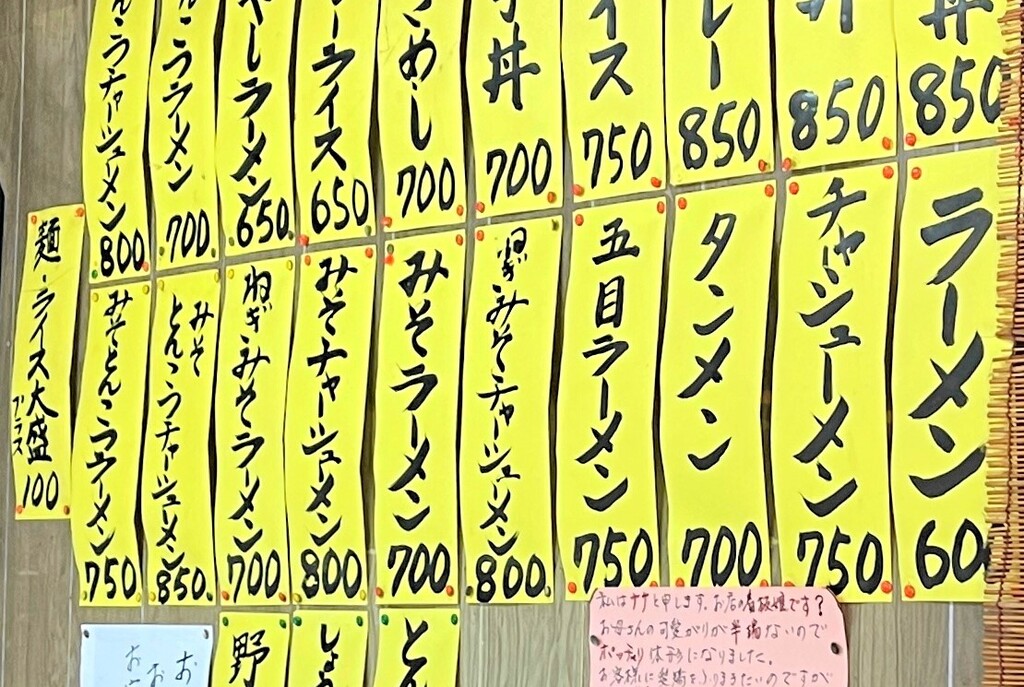 丼
850
850
レー
850
イス
750
丼
700
めし
700
ーライス
650
しラーメン
650
こつラーメン
700
こつチャーシューメン
800
ラーメン
60
チャーシューメン
750
タンメン
700
五目ラーメン
750
ねぎみそチャーシューメン
800
みそラーメン
700
みそチャーシューメン
800
ねぎみそラーメン
700
みそ
とんこつチャーシューメン
850
みそとんこつラーメン
750
麺・ライス大盛
プラス
100
私はナナと申します。お店の看板娘です?
お母さんの可愛がりが半端ないので
ポッチャリ体形になりました。
とん
しょう
野
お
お
お